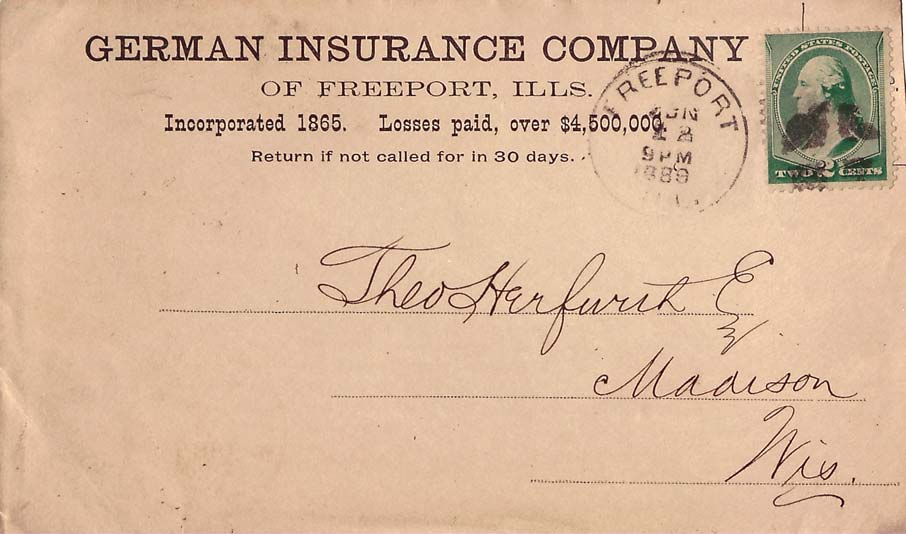 GERMAN INSURANCE COMPANY
OF FREEPORT, ILLS.
Incorporated 1865. Losses paid, over $4,500,000.
Return if not called for in 30 days.
FREEPORT
JUN
9PM
ILL.
UNITED STATES POSTAGE
TWO 2 CENTS
Theo Herfurth E
Madison
Wis.